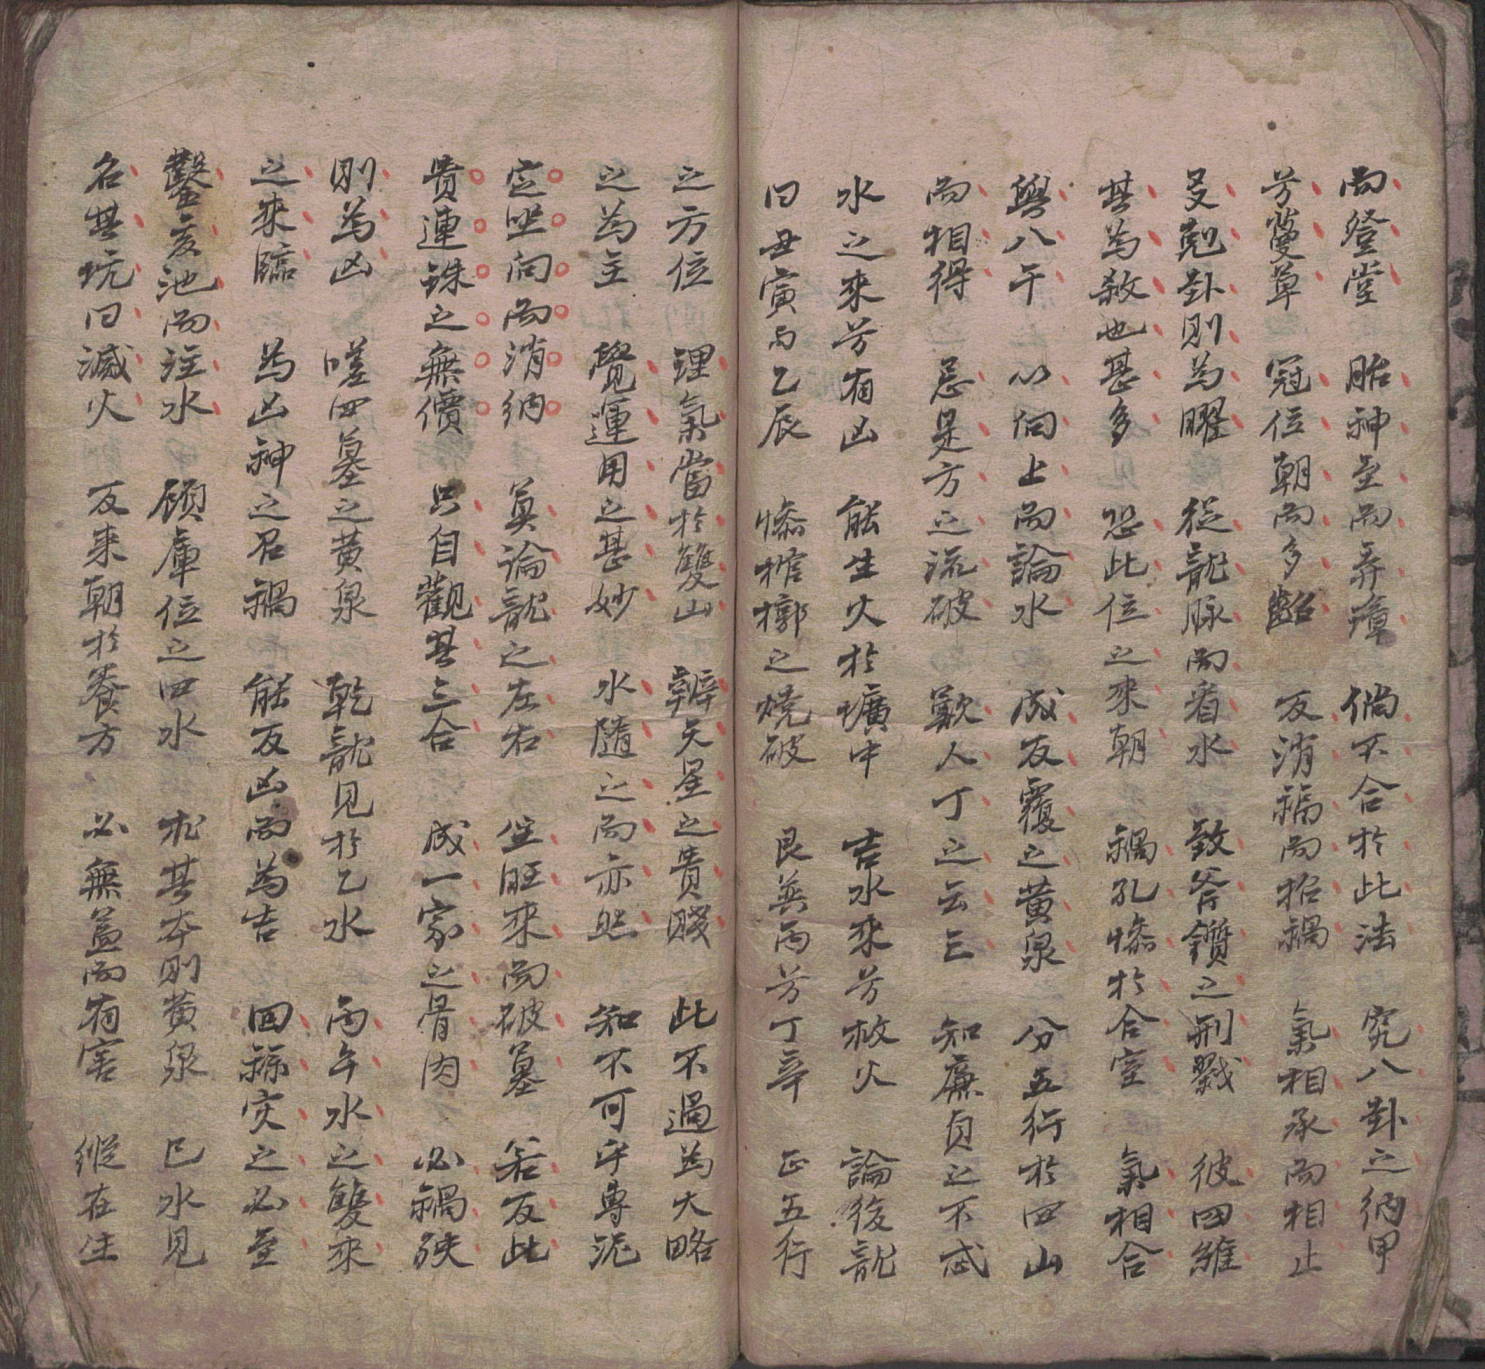 而登堂 胎神至而弄璋 倘不合於此法 究八卦之納甲
芳蔓草 冠位朝而多齠 反消福而招禍 氣相承而相止
受剋卦則為曜 從龍脉而看水 致斧鑕之刑戮 彼四維
其為殺也甚多 恐此位之來朝 禍孔慘於合室 氣相合
與八干 以向上而論水 成反覆之黄泉 分五行於四山
而相得 忌是方之流破 歎人丁之云亡 知廉貞之不忒
水之來芳有凶 能生火於壙中 吉水來芳救火 論後龍
曰丑寅与乙辰 慘棺槨之燒破 艮巽丙芳丁辛 正五行
之方位 理氣當於雙山 辨天星之貴賤 此不過為大略
之為主 覽運用之甚妙 水隨之而亦然 知不可乎專泥
定坐向而消納 莫論龍之左右 生旺來而破墓 若反此
貴連銖之無價 只自觀其三合 成一家之骨肉 必禍殃
則為凶 嗟四墓之黄泉 乾龍見於乙水 丙午水之雙來
之來臨 為凶神之召禍 能反凶而為吉 回祿灾之必至
鑿亥池而注水 顾庫位之四水 於其本則黄泉 巳水見
名其坑曰滅火 反来朝於養方 必無益而有害 縱在生